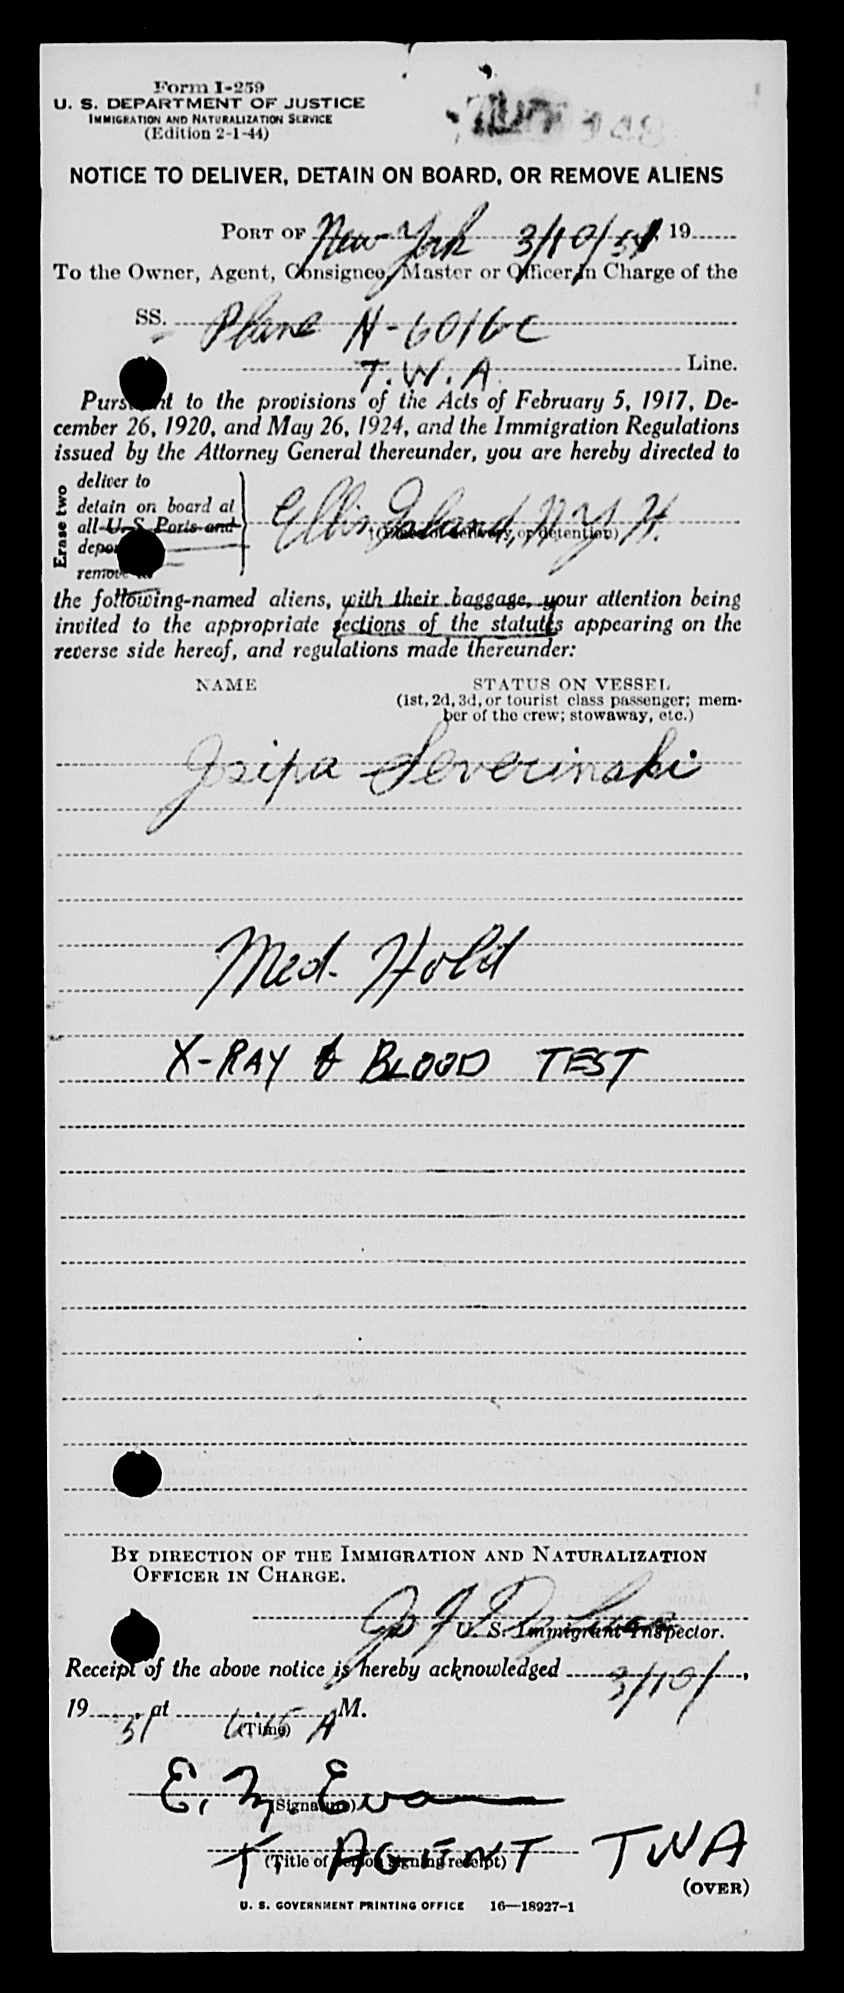 Form I-259
U. S. DEPARTMENT OF JUSTICE
IMMIGRATION AND NATURALIZATION SERVICE
(Edition 2-1-44)
NOTICE TO DELIVER, DETAIN ON BOARD, OR REMOVE ALIENS
PORT OF New York 3/10/51, 19
To the Owner, Agent, Consignee, Master or Officer in Charge of the
SS. Plane N-6016C
T.W.A. Line.
Pursuant to the provisions of the Acts of February 5, 1917, De-
cember 26, 1920, and May 26, 1924, and the Immigration Regulations
issued by the Attorney General thereunder, you are hereby directed to
Erase two
deliver to
detain on board at
all U. S. Ports and
remove to
Ellis Island, N.Y.H.
(Place of delivery, or detention)
the following-named aliens, with their baggage, your attention being
invited to the appropriate sections of the statutes appearing on the
reverse side hereof, and regulations made thereunder:
NAME STATUS ON VESSEL
(1st, 2d, 3d, or tourist class passenger; mem-
ber of the crew; stowaway, etc.)
Josipa Severinski
Med. Hold
X-RAY & BLOOD TEST
BY DIRECTION OF THE IMMIGRATION AND NATURALIZATION
OFFICER IN CHARGE.
U. S. Immigrant Inspector.
Receipt of the above notice is hereby acknowledged 3/10/,
19 51, at A M.
(Time)
E. Evans
(Signature)
AGENT TWA
(Title of person signing receipt)
(OVER)
U. S. GOVERNMENT PRINTING OFFICE 16—18927-1